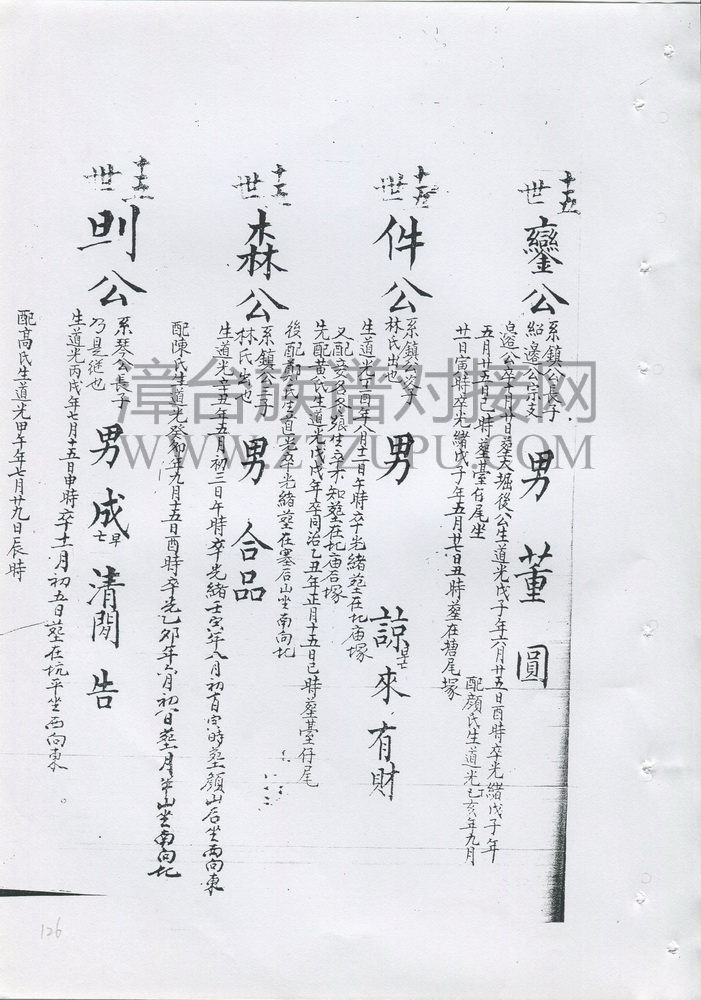 十五世
鑾公
系鎮公長子
紹邊公宗支
男 董 圓
邊公卒十月廿日塟大堀後公生道光戊子年六月廿五日酉時卒光緒戊子年
五月廿五日巳時塟臺仔尾坐
配顔氏生道光己亥年九月
廿日寅時卒光緒戊子年五月廿七日丑時塟在塘尾塚
十五世
件公
系鎮公次子
林氏出也
男 諒 早亡 來 有 財
生道光丁酉年八月十二日午時卒光緒塟在北庙塚
又配安名名張生卒不知塟在北庙合塚
先配黄氏生道光戊戌年卒同治乙丑年正月十五日巳時塟臺仔尾
後配鄭氏生道光卒光緒塟在寨后山坐南向北
十五世
森公
系鎮公三子
林氏出也
男 合 品
生道光辛丑年五月初三日午時卒光緒壬寅年八月初百寅時塟顔山后坐西向東
配陳氏生道光癸卯年九月十五日酉時卒光乙卯年六月初八日塟月半山坐南向北
十五世
則公
系琴公長子
乃是继也
男 成 早亡 清 閙 告
生道光丙戌年七月十五日申時卒十二月初五日塟在坑平坐西向東
配高氏生道光甲午年七月廿九日辰時
漳台族谱对接网
WWW.ZTZUPU.COM
126